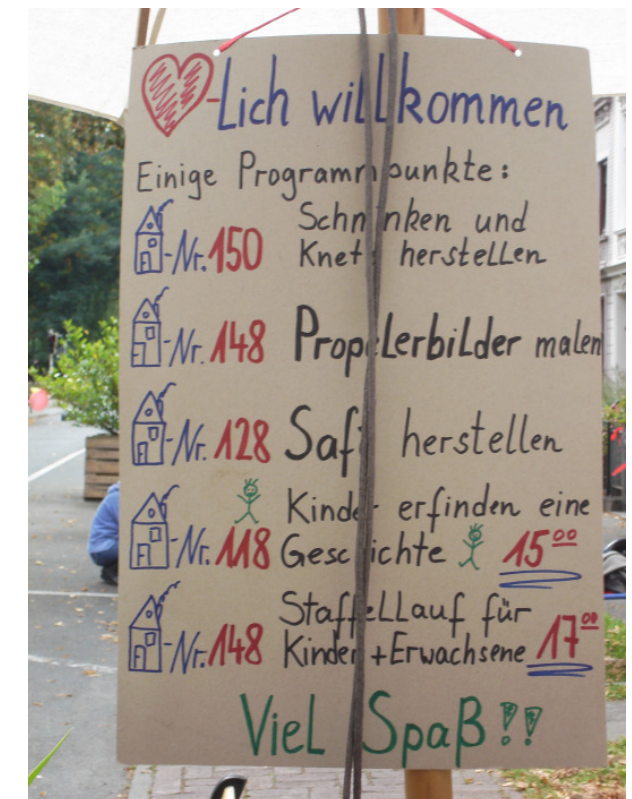 -Lich willkommen
Einige Programmpunkte:
Schminken und
-Nr. 150 Knete herstellen
-Nr. 148 Propelerbilder malen
-Nr. 128 Saft herstellen
Kinder erfinden eine
-Nr. 118 Geschichte 15⁰⁰
Staffellauf für
-Nr. 148 Kinder + Erwachsene 17⁰⁰
Viel Spaß!!